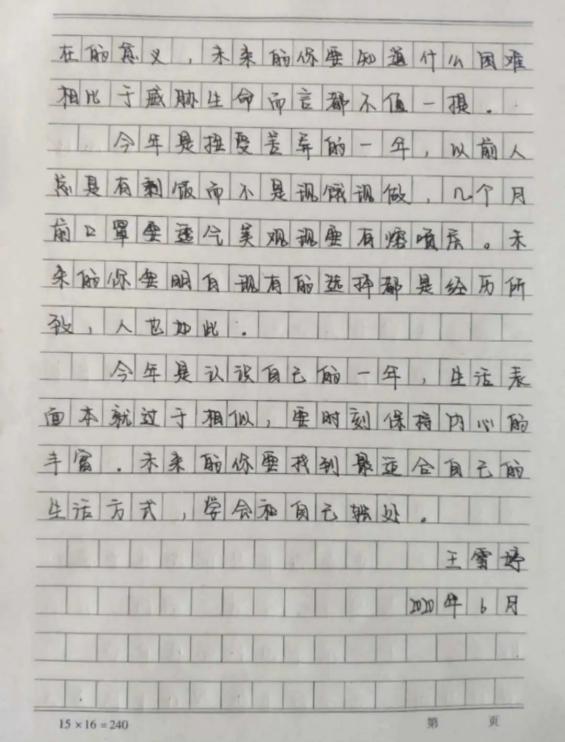 在的意义，未来的你要知道什么困难
相比于威胁生命而言都不值一提。
今年是接受差异的一年，以前人
总是有剩饭而不是现饿现做，几个月
前口罩要透气美观现要有熔喷层。未
来的你要明白现有的选择都是经历所
致，人也如此。
今年是认识自己的一年，生活表
面本就过于相似，要时刻保持内心的
丰富。未来的你要找到最适合自己的
生活方式，学会和自己独处。
王雪婷
2020年6月
15×16=240 第 页